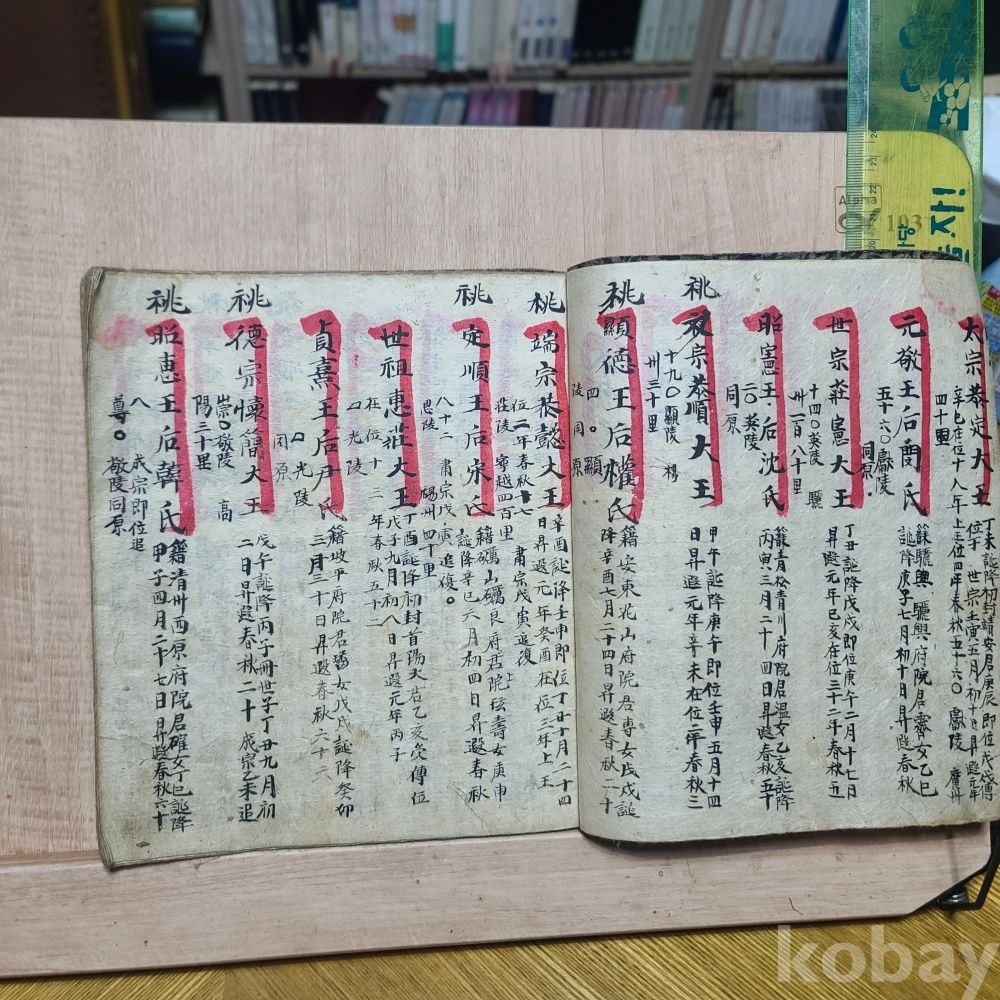 太宗恭定大王
丁未誕降初封靖安君庚辰即位戊戌傳
位于 世宗壬寅五月初十日昇遐元年
辛巳在位十八年上王位四年春秋五十六〇獻陵 廣州
四十里
元敬王后閔氏
籍驪興 驪興府院君霽女乙巳
誕降庚子七月初十日昇遐春秋
五十六〇獻陵
同原
世宗莊憲大王
丁丑誕降戊戌即位庚午二月十七日
昇遐元年己亥在位三十二年春秋五
十四〇英陵 驪
卅一百八十里
昭憲王后沈氏
籍青松青川府院君温女乙亥誕降
丙寅三月二十四日昇遐春秋五十
二〇英陵
同原
祧
文宗恭順大王
甲午誕降庚午即位壬申五月十四
日昇遐元年辛未在位二年春秋三
十九〇顯陵 楊
卅三十里
祧
顯德王后權氏
籍安東花山府院君専女戊戌誕
降辛酉七月二十四日昇遐春秋二十
四〇顯
陵同原
祧
端宗恭懿大王
辛酉誕降壬申即位丁丑十月二十四
日昇遐元年癸酉在位三年上王
位二年春秋十七 肅宗戊寅追復
莊陵 寧越四百里
祧
定順王后宋氏
籍礪山礪良府院君玹壽女庚申
誕降辛巳六月初四日昇遐春秋
八十二 肅宗戊寅追復〇
思陵 楊州四十里
世祖惠莊大王
丁酉誕降初封首陽大君乙亥受傳位
戊子九月初八日昇遐元年丙子
在位十三年春秋五十二
〇光陵
貞熹王后尹氏
籍坡平府院君璠女戊戌誕降癸卯
三月三十日昇遐春秋六十六
〇光陵
同原
祧
德宗懷簡大王
戊午誕降丙子冊世子丁丑九月初
二日昇遐春秋二十 成宗乙未追
崇〇敬陵 高
陽三十里
祧
昭惠王后韓氏
籍清州西原府院君確女丁巳誕降
甲子四月二十七日昇遐春秋六十
八 成宗即位追
尊〇敬陵同原
kobay